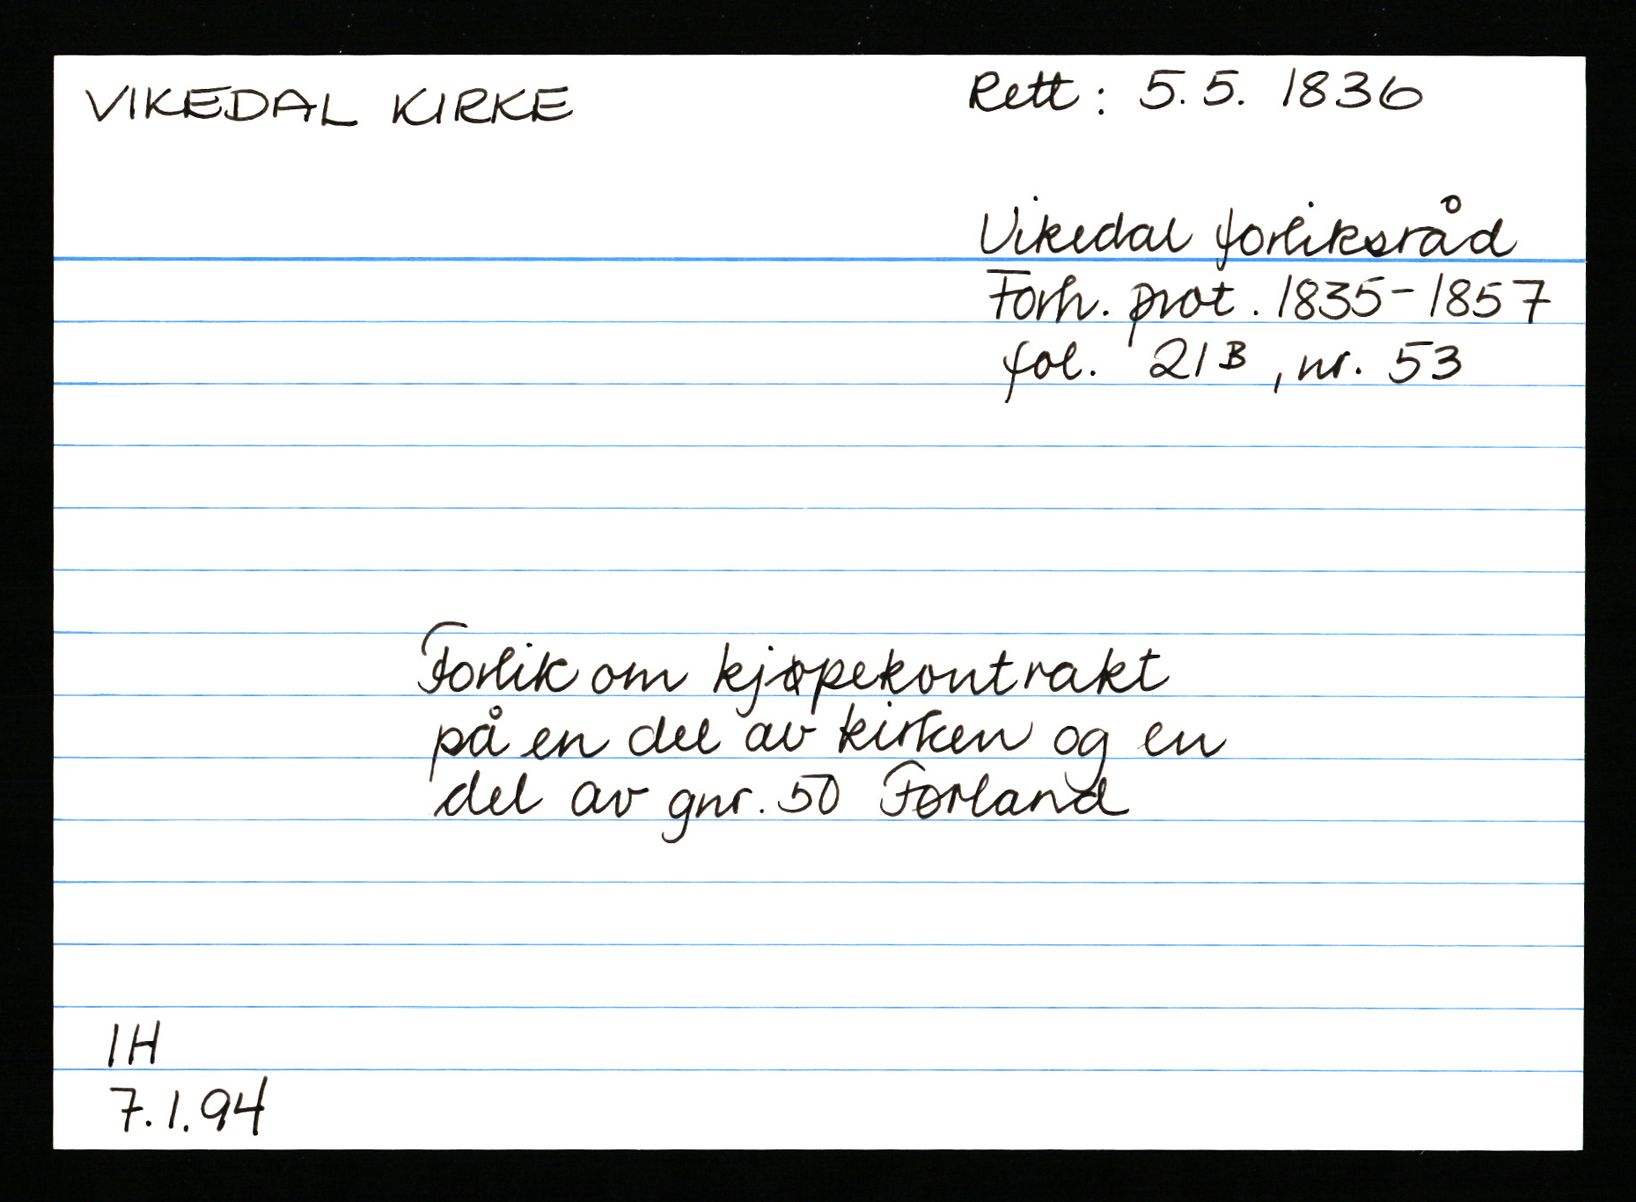 VIKEDAL KIRKE
Rett: 5.5. 1836
Vikedal forliksråd
Forh. prot. 1835-1857
fol. 21B, nr. 53
Forlik om kjøpekontrakt
på en del av kirken og en
del av gnr. 50 Førland
IH
7.1.94